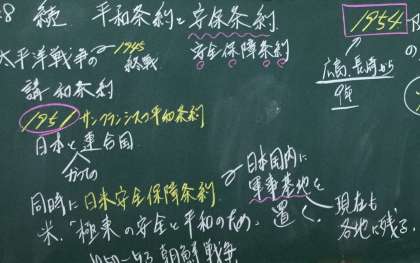 8 続 平和条約と安保条約
太平洋戦争の 1945 終戦
安全保障条約
講和条約
1951 サンフランシスコ平和条約
日本と連合国
同時に日米安全保障条約
日本国内に
軍事基地を
置く、
米、「極東の安全と平和のため、
現在も
各地に残る。
1950-53 朝鮮戦争
1954
広島、長崎から
9年